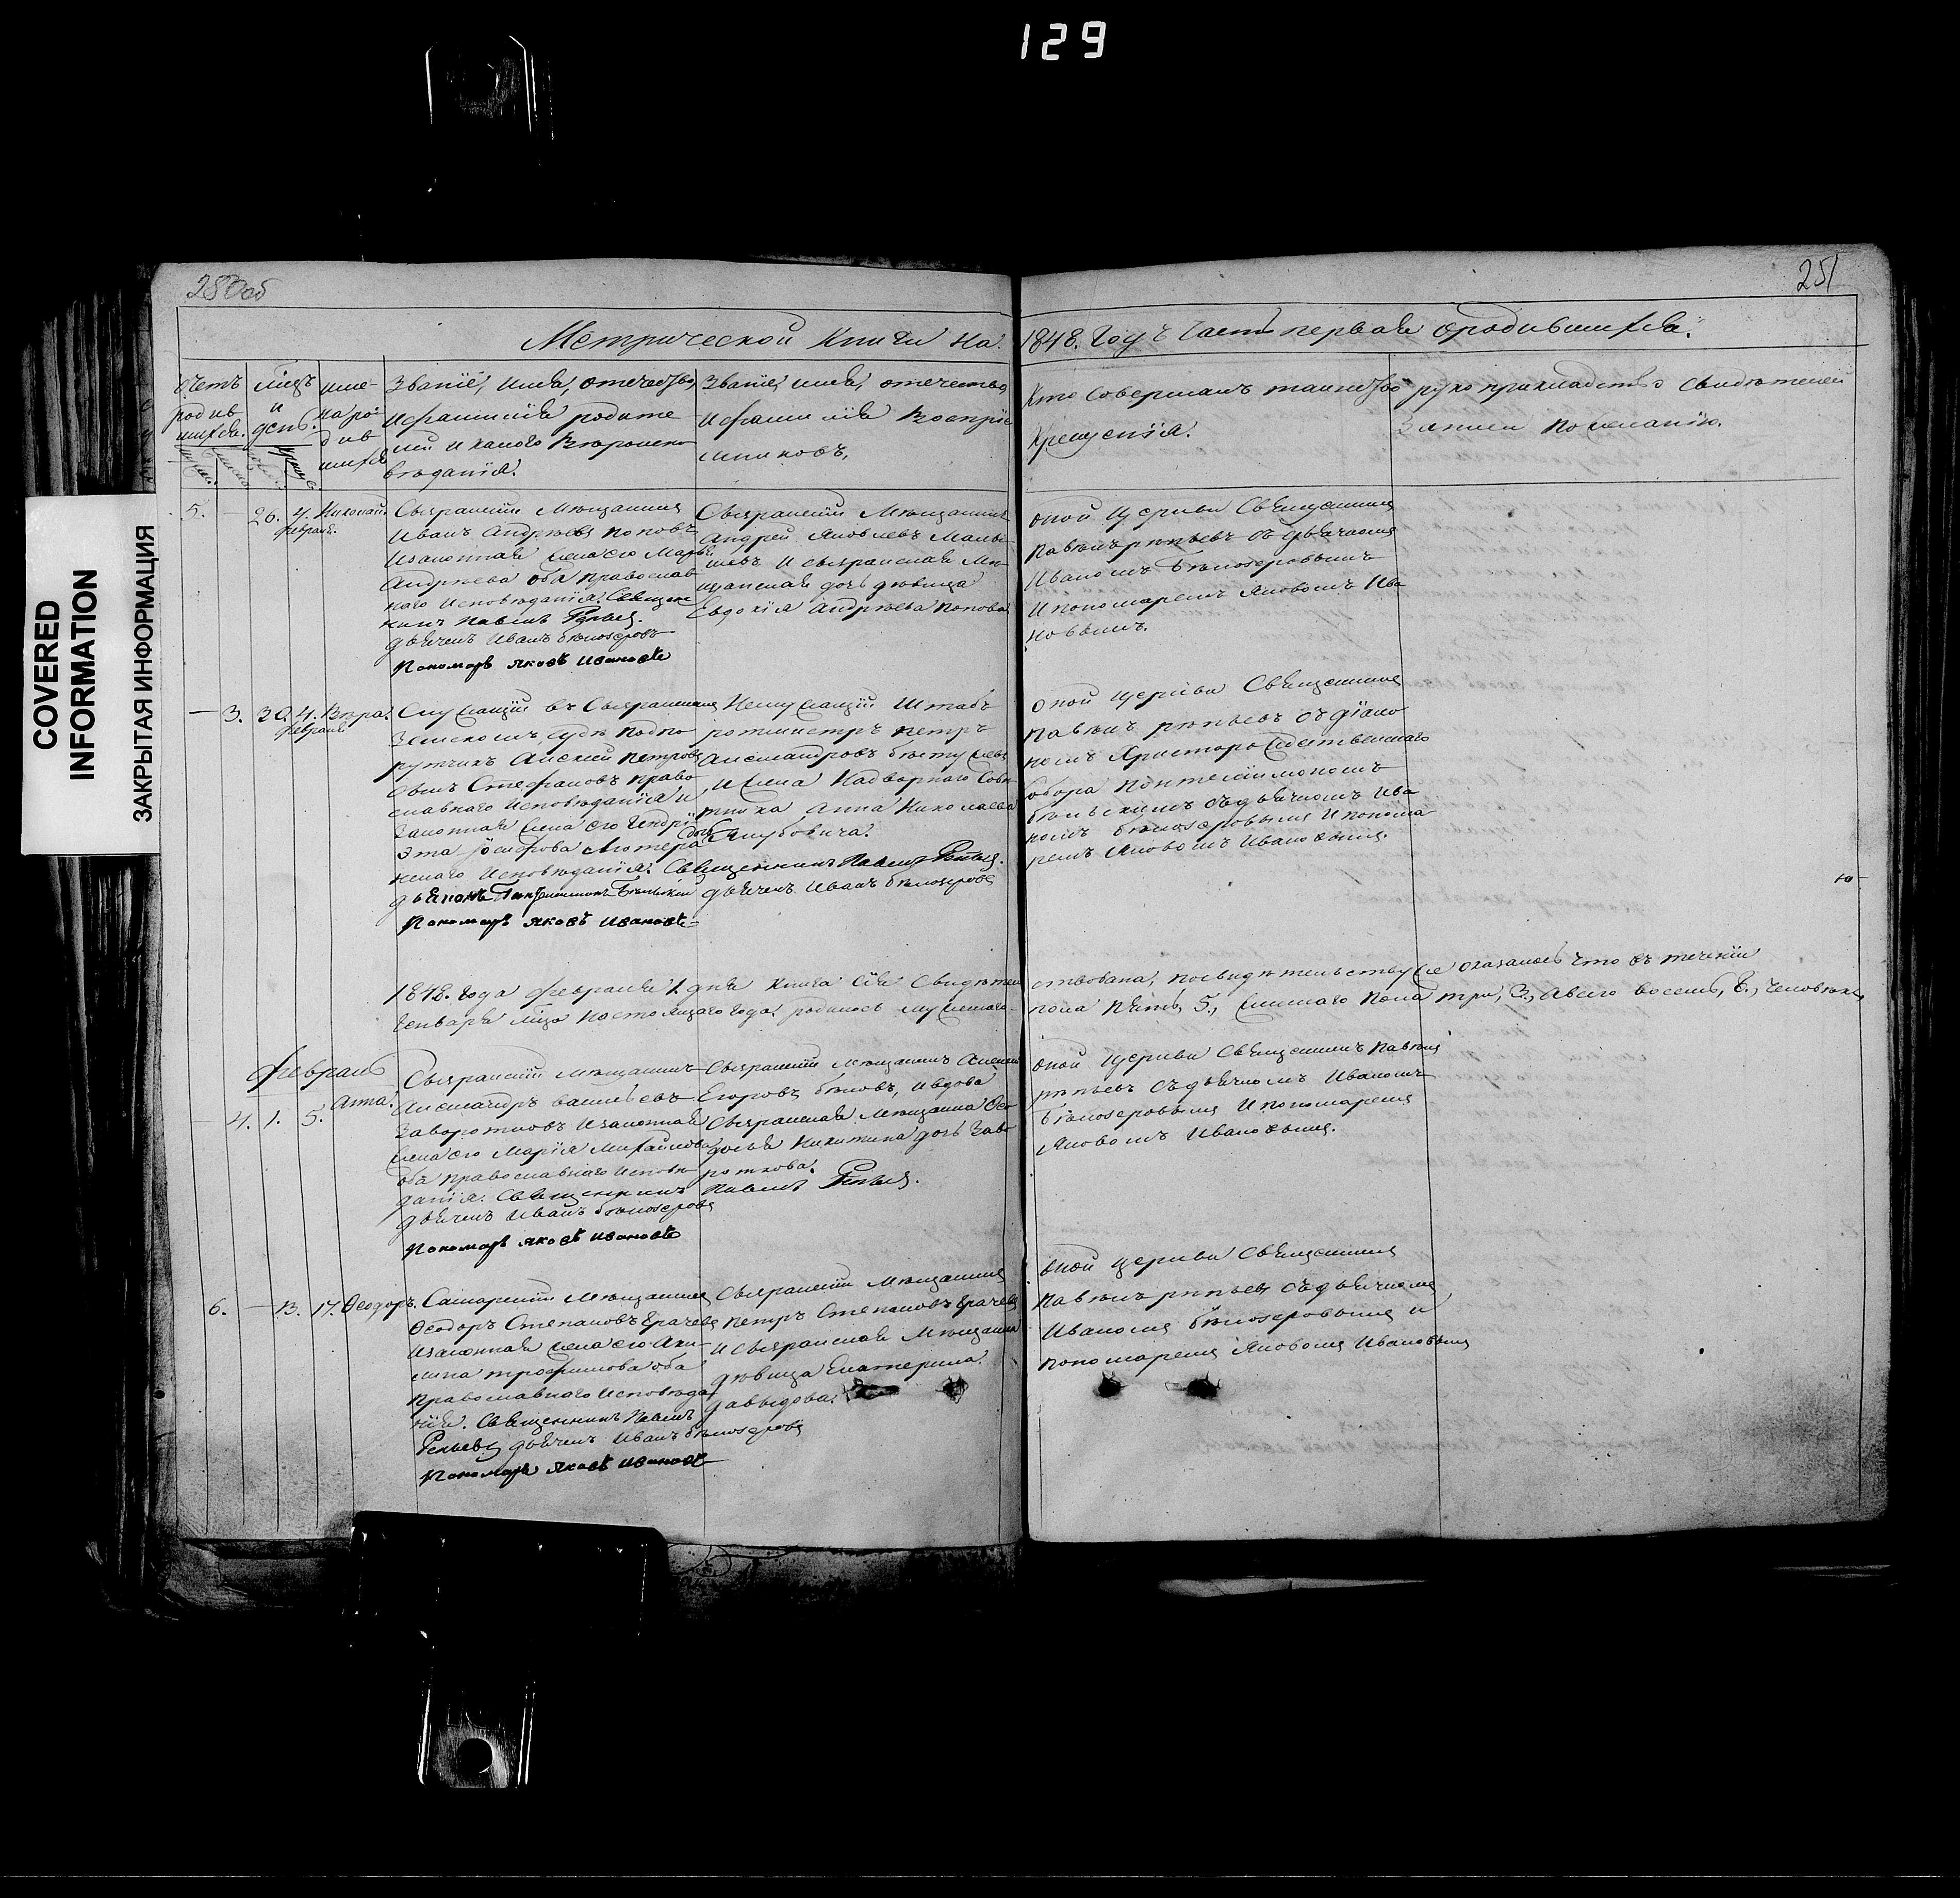 129
COVERED
INFORMATION
ЗАКРЫТАЯ ИНФОРМАЦИЯ
280об
251
Метрической Книги на 1848. Годъ Часть первая о родившихся.
Счетъ родившихся.
Мѣсяцъ и день.
имена родившихся
Званіе, имя, отчество,
и фамилія родите
лей и какого вѣроиспо
вѣданія.
Званіе, имя, отечество,
и фамилія воспріе
мниковъ,
Кто совершалъ таинство
Крещенія.
рукоприкладство свидѣтелей
записи по желанію.
5. — 26. 4. Николай.
февраля.
Сызранскій Мѣщанинъ
Иванъ Андреевъ Поповъ
и законная жена его Марья
Андреева оба православ
наго исповѣданія. Священ
никъ Павелъ Репьевъ.
дьячекъ Иванъ Бѣлозеровъ
Пономарь Яковъ Ивановъ
Сызранскій Мѣщанинъ
Андрей Яковлевъ Малы
шевъ и сызранская Мѣ
щанская дочь дѣвица
Евдокія Андреева Попова
оной церкви Священникъ
Павелъ Репьевъ съ дьячкомъ
Иваномъ Бѣлозеровымъ
и пономаремъ Яковомъ Ива
новымъ.
— 3. 30. 4. Вѣра.
февраля
Служащій въ Сызранскомъ
Земскомъ Судѣ Подпо
ручикъ Алексѣй Петровъ
сынъ Стефановъ право
славнаго исповѣданія и
законная жена его Гендрі
эта Іосифова дочь Лютера
нскаго исповѣданія. Священникъ Павелъ Репьевъ.
дьяконъ Пантелеимонъ Бѣльскій дьячекъ Иванъ Бѣлозеровъ
Пономарь Яковъ Ивановъ
Неслужащій Штабъ
ротмистръ Петръ
Александровъ Бестужевъ
и жена Надворнаго Совѣ
тника Анна Николаева
оной церкви Священникъ
Павелъ Репьевъ съ діако
номъ Христорождественскаго
Собора Пантелеимономъ
Бѣльскимъ съ дьячкомъ Ива
номъ Бѣлозеровымъ и понома
ремъ Яковомъ Ивановымъ.
1848. года февраля 1. дня Книга сія свидѣтельствована, по свидѣтельству же оказалось что въ теченіи
Генваря мѣсяца настоящаго года родилось мужескаго пола пять, 5., женскаго пола три, 3., а всего восемь, 8., человѣкъ
февраль
— 4. 1. 5. Анна.
Сызранскій мѣщанинъ
Александръ Васильевъ
Заворотковъ и законная
жена его Марія Михайлова
оба православнаго исповѣ
данія. Священникъ Павелъ Репьевъ.
дьячекъ Иванъ Бѣлозеровъ
Пономарь Яковъ Ивановъ
Сызранскій мѣщанинъ Алексѣй
Егоровъ Бѣловъ, и вдова
Сызранская Мѣщанка Ѳео
досья Никитина дочь Заво
роткова.
оной церкви Священникъ Павелъ
Репьевъ съ дьячкомъ Иваномъ
Бѣлозеровымъ и пономаремъ
Яковомъ Ивановымъ.
6. — 13. 17. Ѳеодоръ.
Самарскій Мѣщанинъ
Ѳеодоръ Степановъ Грачевъ
и законная жена его Аки
лина Трофимова оба
Православнаго исповѣда
нія. Священникъ Павелъ
Репьевъ дьячекъ Иванъ Бѣлозеровъ
Пономарь Яковъ Ивановъ
Сызранскій Мѣщанинъ
Петръ Степановъ Грачевъ
и Сызранская Мѣщанка
дѣвица Екатерина
Давыдова.
оной церкви Священникъ
Павелъ Репьевъ съ дьячкомъ
Иваномъ Бѣлозеровымъ и
пономаремъ Яковомъ Ивановымъ